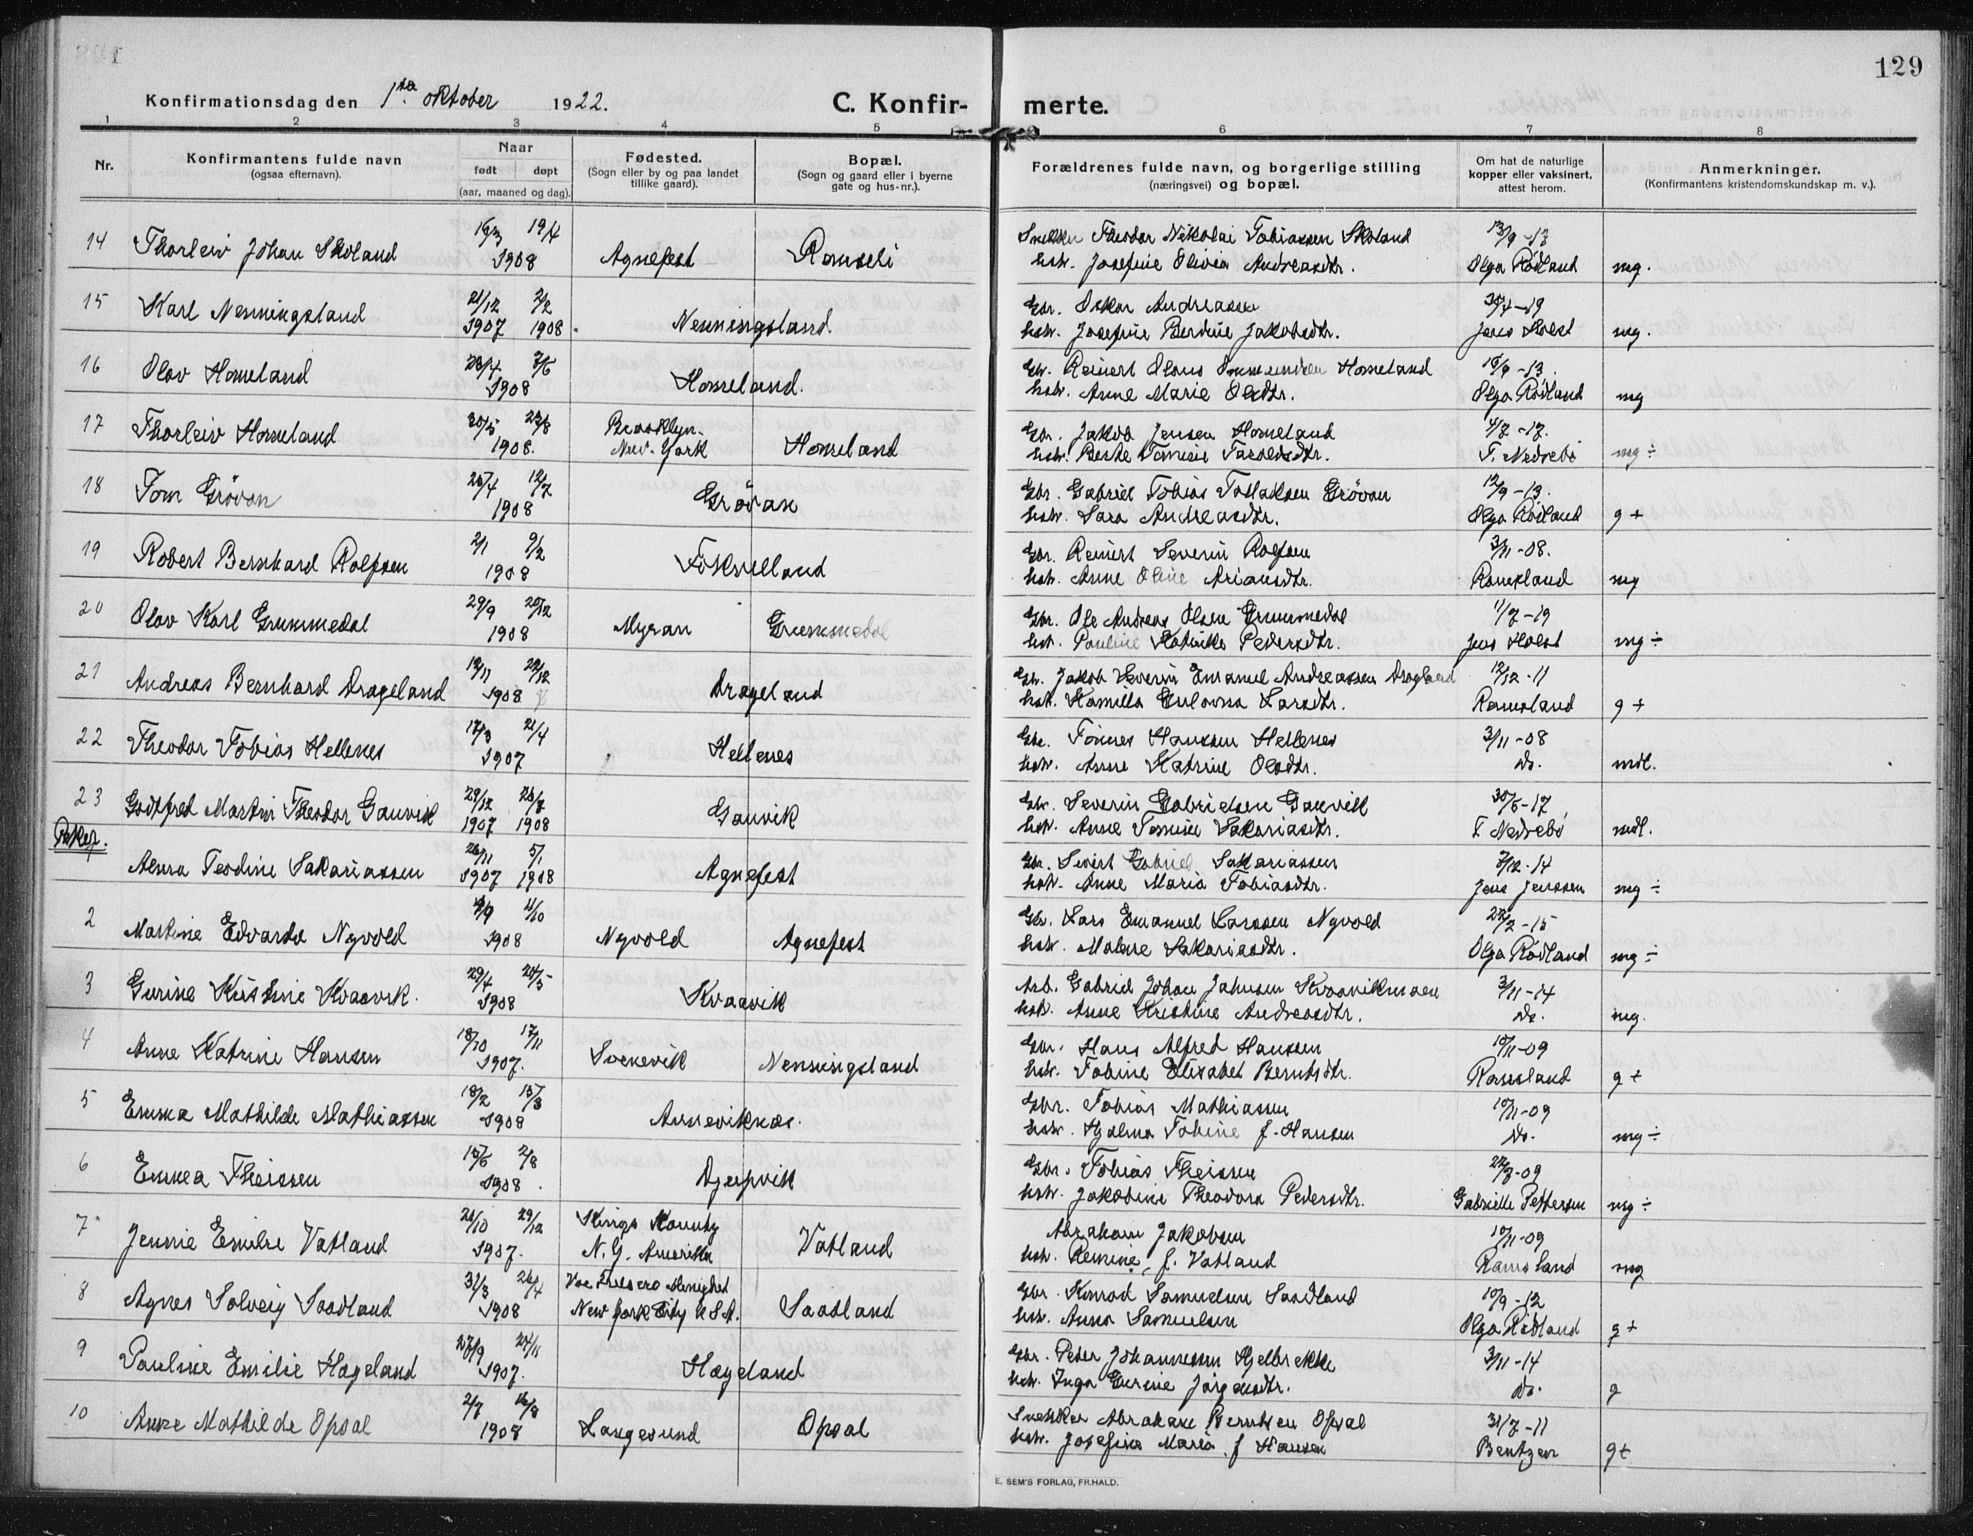 129
Konfirmationsdag den 1ste oktober 1922. C. Konfir- merte.
1 2 3 4 5 6 7 8
Nr. Konfirmantens fulde navn (ogsaa efternavn). Naar født døpt (aar, maaned og dag). Fødested. (Sogn eller by og paa landet tillike gaard). Bopæl. (Sogn og gaard eller i byerne gate og hus-nr.). Forældrenes fulde navn, og borgerlige stilling (næringsvei) og bopæl. Om hat de naturlige kopper eller vaksinert, attest herom. Anmerkninger. (Konfirmantens kristendomskundskap m. v.).
14 Thorleiv Johan Skoland 19/4 1908 Agnefest Ramseli Snekker Theodor Nikolai Tobiassen Skoland 13/9-17
hstr. Josefine Olivia Andreasdtr. Olga Rödland mg.
15 Karl Nenningsland 21/12 1907 2/2 1908 Nenningsland Gbr. Oskar Andreassen 30/4-19
hstr. Josefine Berdine Jakobsdtr. Jens Holst mg.
16 Olov Homeland 1908 Homeland. Reinert Olaus Homeland
hstr. Anne Marie Olsdtr. Olga Rödland mg
17 Thorleiv Homeland 30/5 23/8 1908. Brooklyn. New-York Homeland Gbr. Jakob Jensen Homeland 4/7-17.
hstr. Berte Tomine Taraldsdtr. T. Nedrebö mg ÷
18 Tom Grövan 25/4 12/7 1908 Grövan Gbr. Gabriel Tobias Tollaksen Grövan 12/9-13.
hstr. Sara Andreasdtr. Olga Rödland g +
19 Robert Bernhard Rolfsen 2/1 9/2 1908 Fokselland Gbr. Reinert Severin Rolfsen 3/11-08.
hstr. Anne Oline Ariansdtr. Ramsland mg
20 Olav Karl Grummedal 29/9 20/12 1908 Myran Grummedal Gbr. Ole Andreas Olsen Grummedal 11/7-19
hstr. Pauline Katrine Pedersdtr. Jens Holst mg ÷
21 Andreas Bernhard Drageland 12/11 22/12 1908 Drageland Jakob Severin Emanuel Andreassen Drageland 12/12-11
hstr. Kamilla Larsdtr. Ramsland g +
22 Theodor Tobias Hellenes 17/3 21/4 1907 Hellenes Gbr. Tönnes Hansen Hellenes 3/11-08
hstr. Anne Katrine Olsdtr. Do. mdl.
23 Godtfred Martin Theodor Gauvik 29/12 1907 1908 Gauvik Gbr. Severin Gabrielsen Gauvik 30/6-17
hstr. Anne Tomine Sakariasdtr. T. Nedrebö mdl.
Piker.
1 Alma Teodine Sakariassen 26/11 1907 5/1 1908 Agnefest Gbr. Sivert Gabriel Sakariassen 7/12-14
hstr. Anne Maria Tobiasdtr. Jens Jenssen mg ÷
2 Martine Edvarda Nyvold 4/9 11/10 1908 Nyvold Agnefest Gbr. Lars Emanuel Larssen Nyvold 22/2-15
hstr. Malene Sakariasdtr. Olga Rödland mg ÷
3 Gurine Kristine Kvaavik. 29/4 24/5 1908 Kvaavik Arb. Gabriel Johan Jahnsen Kvaavikmoen 3/11-14
hstr. Anne Kristine Andreasdtr. Do. mg.
4 Anne Katrine Hansen 18/10 17/11 1907. Svenevik Nenningsland Gbr. Hans Alfred Hanssen 10/11-09
hstr. Tobine Elisabet Berntsdtr. Ramsland g +
5 Emma Mathilde Mathiassen 18/2 15/3 1908 Anneviknæs. Gbr. Tobias Mathiassen 10/11-09
hstr. Hjalma Tobine f. Hansen Do. mg ÷
6 Emma Theissen 15/6 2/8 1908. Djupvik Gbr. Tobias Theissen 22/7-09
hstr. Jakobine Theodora Pedersdtr. Gabrielle Pettersen mg ÷
7 Jennie Emilie Vatland 21/10 29/12 1907. Kings Kounty N.Y. Amerika Vatland Abraham Jakobsen 10/11-09
hstr. Remine, f. Vatland Ramsland mg
8 Agnes Solveig Saadland 31/3 26/4 1908 Vor Frelsers Menighet New York City U.S.A. Saadland Gbr. Konrad Samuelsen Saadland 10/9-12
hstr. Anna Samuelsen Olga Rödland g +
9 Pauline Emilie Hægeland 27/9 24/11 1907. Hægeland Gbr. Peter Johannessen Hjelbrekke 3/11-14
hstr. Inga Gurine Jörgensdtr. Do. g
10 Anne Mathilde Opsal 2/7 16/8 1908 Langesund Opsal Snekker Abraham Berntsen Opsal 31/7-11
hstr. Josefine Maria f Hansen Bentzen g +
E. SEM'S FORLAG, FR.HALD.